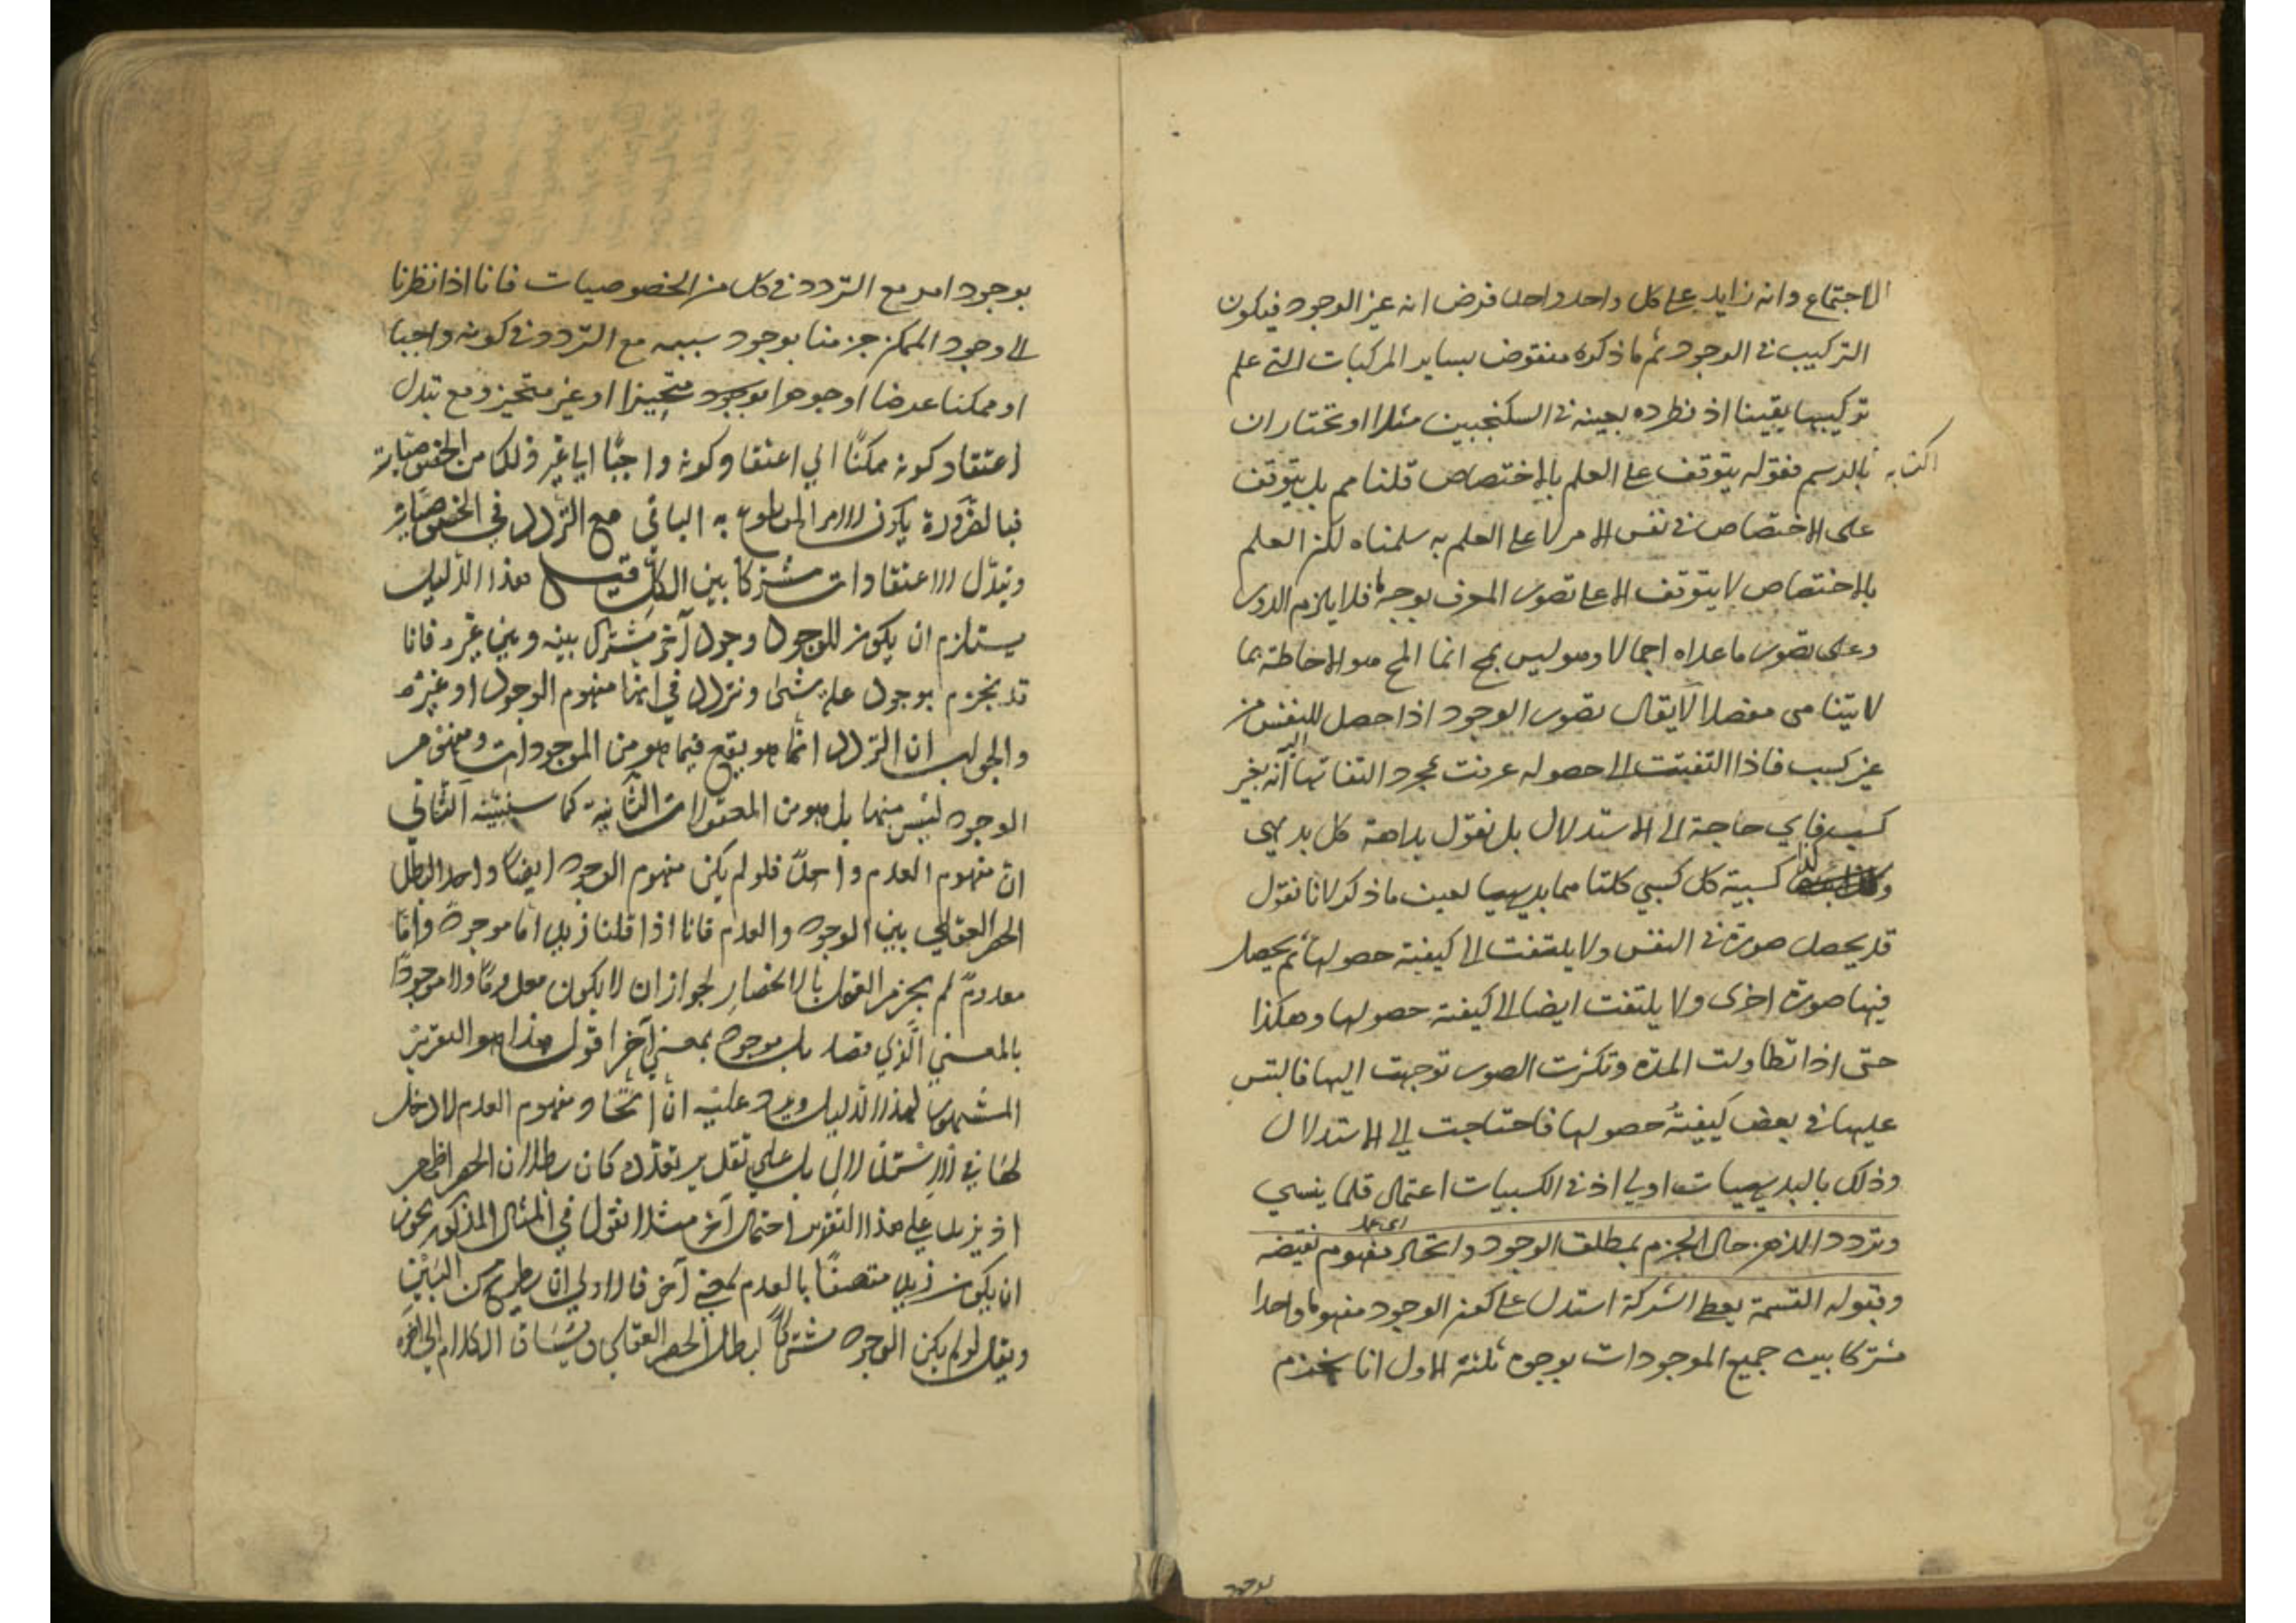 الاجتماع وانه زايد على كل واحد واحد فرض انه غير الوجود فيكون
التركيب في الوجود ثم ما ذكره منقوض بساير المركبات التي علم
تركيبها يقينا اذ نطرده بعينه في السكنجبين مثلا او نختار ان
اكتسابه
بالرسم فقوله يتوقف على العلم بالاختصاص قلنا مم بل يتوقف
على الاختصاص في نفس الامر لا على العلم به سلمناه لكن العلم
بالاختصاص لا يتوقف الا على تصور المعرف بوجه ما فلا يلزم الدور
وعلى تصور ما عداه اجمالا وهو ليس بمح انما المح هو الاحاطة بما
لا يتناهى مفصلا لا يقال تصور الوجود اذا حصل للنفس من
غير كسب فاذا التفتت الى حصوله عرفت بمجرد التفاتها اليه انه بغير
كسب فاي حاجة الى الاستدلال بل نقول بداهة كل بديهي
كسبية كل كسبي كلتاهما بديهيا لعين ما ذكر لانا نقول
قد يحصل صورة في النفس ولا يلتفت الى كيفية حصولها ثم يحصل
فيها صورة اخرى ولا يلتفت ايضا الى كيفية حصولها وهكذا
حتى اذا تطاولت المدة وتكثرت الصور توجهت اليها فالتبس
عليها في بعض كيفية حصولها فاحتاجت الى الاستدلال
وذلك بالبديهيات اولى اذ في الكسبيات اعتمال قلما ينسى
وتردد الذهن حال الجزم بمطلق الوجود واتحاد مفهوم نقيضه
وقبوله القسمة يعطى الشركة استدل على كون الوجود مفهوما واحدا
مشتركا بين جميع الموجودات بوجوه ثلثة الاول انا نجزم
بوجود
بوجود امر مع التردد في كل من الخصوصيات فانا اذا نظرنا
الى وجود الممكن جزمنا بوجود سببه مع التردد في كونه واجبا
او ممكنا عرضا او جوهرا متحيزا او غير متحيز ومع تبدل
اعتقاد كونه ممكنا الي اعتقاد كونه واجبا الي غير ذلك من الخصوصيات
فبالضرورة يكون الامر المقطوع به الباقي مع التردد في الخصوصيات
وتبدل الاعتقادات مشتركا بين الكل قيل هذا الدليل
يستلزم ان يكون للوجود وجود آخر مشترك بينه وبين غيره فانا
قد نجزم بوجود علة شئ ونتردد في انها مفهوم الوجود او غيره
والجواب ان التردد انما هو يقع فيما هو من الموجودات ومفهوم
الوجود ليس منها بل هو من المعقولات الثانية كما سنبينه الثاني
ان مفهوم العدم واحد فلو لم يكن مفهوم الوجود ايضا واحدا لبطل
الحصر العقلي بين الوجود والعدم فانا اذا قلنا زيد اما موجود واما
معدوم لم يجزم العقل بالانحصار لجواز ان لا يكون معدوما ولا موجودا
بالمعني الذي قصد بل موجود بمعني آخر اقول هذا هو التقرير
المشهور لهذا الدليل ويرد عليه ان اتحاد مفهوم العدم لا دخل
لها في الاستدلال بل علي تقدير تعدده كان بطلان الحصر اظهر
اذ يزيد علي هذا التقدير احتمال آخر مثلا نقول في المثال المذكور يجوز
ان يكون زيد متصفا بالعدم بمعني آخر فالاولي ان يطرح من البين
ويقال لو لم يكن الوجود مشتركا لبطل الحصر العقلي ويساق الكلام الي آخره